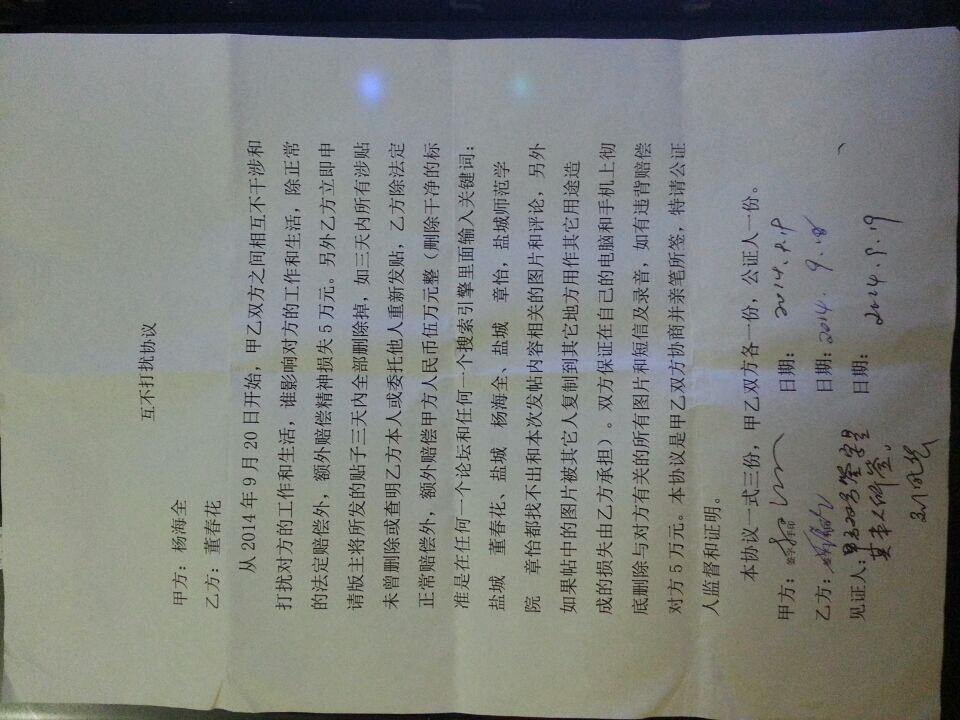 互不打扰协议
甲方：杨海全
乙方：董春花
从 2014 年 9 月 20 日开始，甲乙双方之间相互不干涉和
打扰对方的工作和生活，谁影响对方的工作和生活，除正常
的法定赔偿外，额外赔偿精神损失 5 万元。另外乙方立即申
请版主将所发的贴子三天内全部删除掉，如三天内所有涉贴
未曾删除或查明乙方本人或委托他人重新发贴，乙方除法定
正常赔偿外，额外赔偿甲方人民币伍万元整（删除干净的标
准是在任何一个论坛和任何一个搜索引擎里面输入关键词：
盐城 董春花、盐城 杨海全、盐城 章怡，盐城师范学
院 章怡都找不出和本次发帖内容相关的图片和评论，另外
如果帖中的图片被其它人复制到其它地方用作其它用途造
成的损失由乙方承担）。双方保证在自己的电脑和手机上彻
底删除与对方有关的所有图片和短信及录音，如有违背赔偿
对方 5 万元。本协议是甲乙双方协商并亲笔所签，特请公证
人监督和证明。
本协议一式三份，甲乙双方各一份，公证人一份。
甲方： 签字手印 日期： 2014.9.19
乙方： 日期： 2014.9.18
见证人：甲乙双方签字是 日期： 2014.9.19
其本人所签。